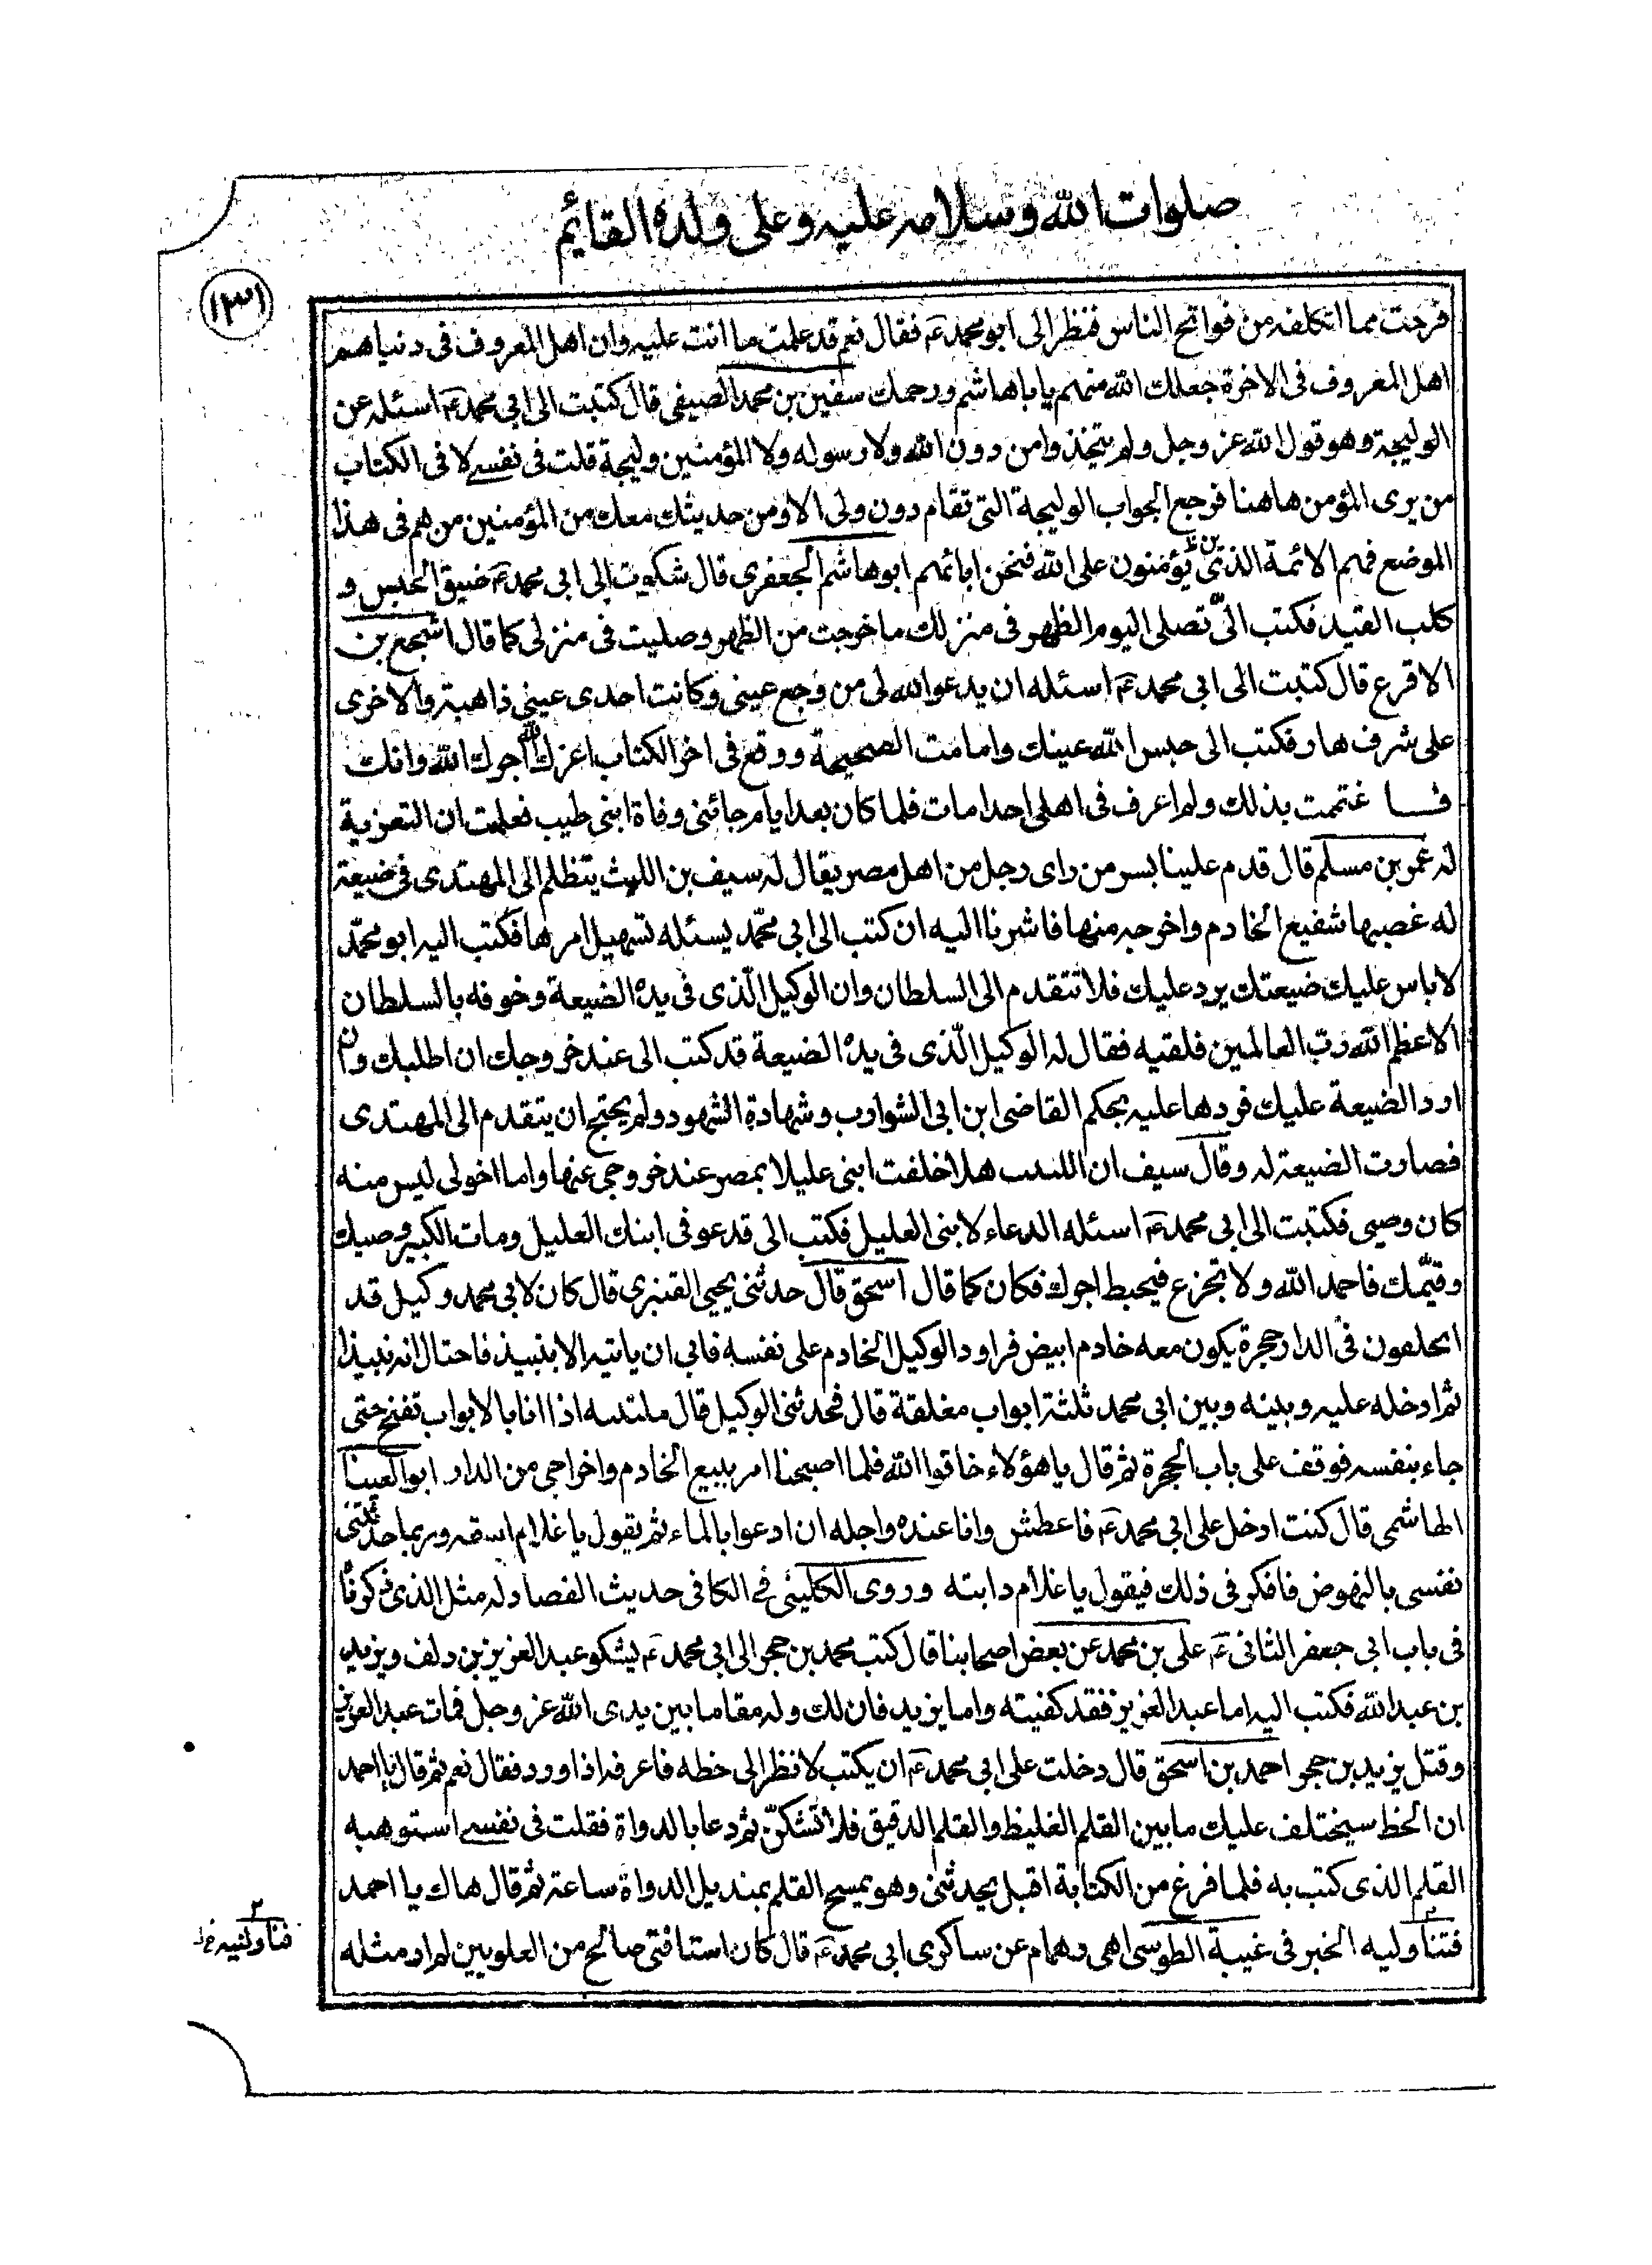 صلوات الله وسلامه عليه وعلى ولده القائم
١٣١
فرحت مما اتكلفه من فوائج الناس فنظر الى ابو محمد ع فقال نعم قد علمت ما انت عليه وان اهل المعروف فى دنياهم
اهل المعروف فى الاخرة جعلك الله منهم يا باهاشم ورحمك سفين بن محمد الصيفى قال كتبت الى ابى محمد ع اسئله عن
الوليجة وهو قول الله عز وجل ولم يتخذوا من دون الله ولا رسوله ولا المؤمنين وليجة قلت فى نفسى لا فى الكتاب
من يرى المؤمن هاهنا فرجع الجواب الوليجة التى تقام دون ولى الاو من حديثك معك من المؤمنين من هم فى هذا
الموضع فهم الائمة الذين يؤمنون على الله فنحن ابائهم ابو هاشم الجعفرى قال شكوت الى ابى محمد ع ضيق الحبس و
كلب القيد فكتب الىّ تصلى اليوم الظهر فى منزلك ما خرجت من الظهر وصليت فى منزلى كما قال اشجع بن
الاقرع قال كتبت الى ابى محمد ع اسئله ان يدعو الله لى من وجع عينى وكانت احدى عينى ذاهبة والاخرى
على شرف هار فكتب الى حبس الله عينك وامامت الصحيحة ووقع فى اخر الكتاب اعزك الله اجرك الله وانك
فا غتمت بذلك ولم اعرف فى اهلى احدا مات فلما كان بعد ايام جائنى وفاة ابنى طيب فعلمت ان التعزية
له عمر بن مسلم قال قدم علينا بسر من راى رجل من اهل مصر يقال له سيف بن الليث يتظلم الى المهتدى فى ضيعة
له غصبها شفيع الخادم واخرجه منها فاشرنا اليه ان كتب الى ابى محمّد يسئله تسهيل امرها فكتب اليه ابو محمّد
لا باس عليك ضيعتك يرد عليك فلا تتقدم الى السلطان وان الوكيل الّذى فى يده الضيعة وخوفه بالسلطان
الاعظم الله ربّ العالمين فلقيه فقال له الوكيل الّذى فى يده الضيعة قد كتب الى عند خروجك ان اطلبك وان
ارد الضيعة عليك فردها عليه بحكم القاضى ابن ابى الشوارب وشهادة الشهود ولم يحتج ان يتقدم الى المهتدى
فصارت الضيعة له وقال سيف ان الليث هلا خلفت ابنى عليلا بمصر عند خروجى عنها واما اخولى ليس منه
كان وصيى فكتبت الى ابى محمد ع اسئله الدعاء لابنى العليل فكتب الى قد عوفى ابنك العليل ومات الكبير وصيك
وقيّمك فاحمد الله ولا تجزع فيحبط اجرك فكان كما قال اسحق قال حدثنى يحيى القنبرى قال كان لابى محمد وكيل قد
اتخلفون فى الدار حجرة يكون معه خادم ابيض فراود الوكيل الخادم على نفسه فابى ان ياتيه الا بنبيذ فاحتال له نبيذا
ثم ادخله عليه وبينه وبين ابى محمد ثلثة ابواب مغلقة قال فحدثنى الوكيل قال منتبه اذا انا بالابواب تفتح حتى
جاء بنفسه فوقف على باب الحجرة ثم قال يا هؤلاء خافوا الله فلما اصبحنا امر ببيع الخادم واخراجى من الدار ابو العينا
الهاشمى قال كنت ادخل على ابى محمد ع فاعطش وانا عنده واجله ان ادعوا بالماء ثم يقول يا غلام اسقه وربما حدثتنى
نفسى بالنهوض فافكر فى ذلك فيقول يا غلام دابته وروى الكلينى فى الكافى حديث الفصاد له مثل الذى ذكرناه
فى باب ابى جعفر الثانى ع على بن محمد عن بعض اصحابنا قال كتب محمد بن حجر الى ابى محمد ع يشكو عبد العزيز بن دلف ويزيد
بن عبد الله فكتب اليه اما عبد العزيز فقد كفيته واما يزيد فان لك وله مقاما بين يدى الله عز وجل فمات عبد العزيز
وقتل يزيد بن حجر احمد بن اسحق قال دخلت على ابى محمد ع ان يكتب لانظر الى خطه فاعرفه اذا ورد فقال نعم ثم قال يا احمد
ان الخط سيختلف عليك ما بين القلم الغليظ والقلم الدقيق فلا تشكنّ ثم دعا بالدواة فقلت فى نفسى استوهبه
القلم الذى كتب به فلما فرغ من الكتابة اقبل يحدثنى وهو يمسح القلم بمنديل الدواة ساعة ثم قال هاك يا احمد
فتناوليه الخبر فى غيبة الطوسى اهى وهمام عن ساكرى ابى محمد ع قال كان استافتى صالح من العلويين لم ار مثله
فناولنيه خل